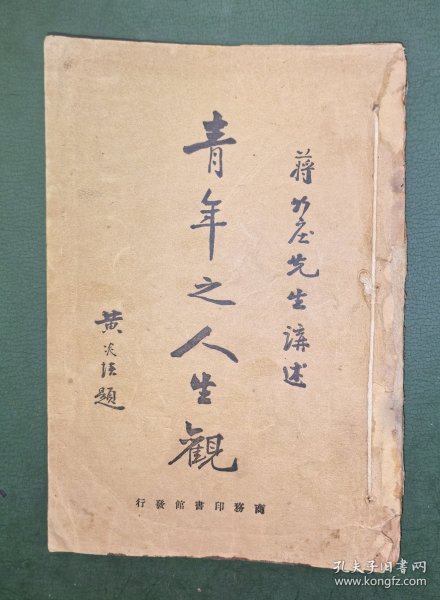 蔣竹庄先生講述
青年之人生觀
黃炎培題
商務印書館發行
孔夫子旧书网
www.kongfz.com